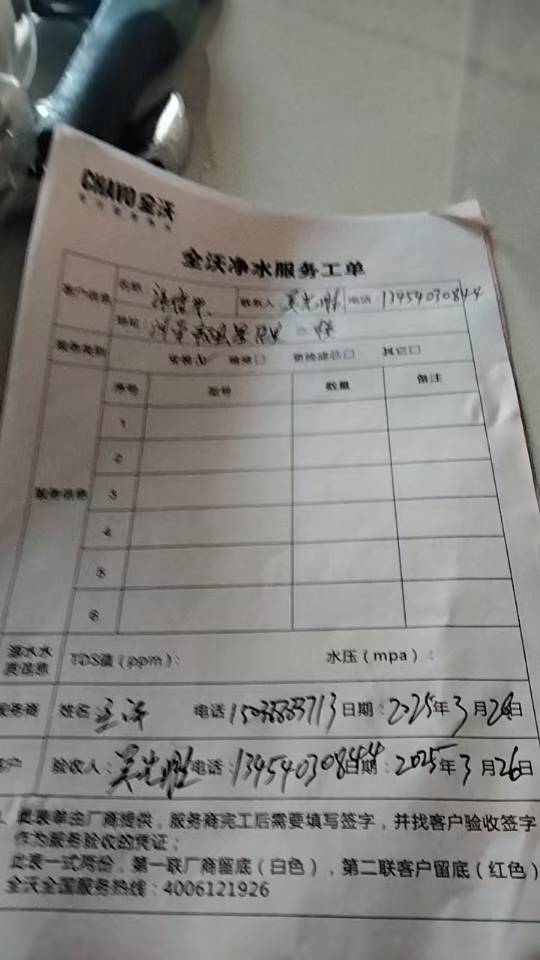 CHAVO全沃
全沃净水服务工单
客户信息 名称 联系人 吴光胜 电话 13454030844
地址
服务类别 安装☑ 维修□ 更换滤芯□ 其它□
序号 型号 数量 备注
1
2
服务信息 3
4
5
6
源水水质信息 TDS值（ppm）： 水压（mpa）：
服务商 姓名 电话 日期：2025年3月26日
客户 验收人：吴光胜 电话：13454030844 日期：2025年3月26日
此表单由厂商提供，服务商完工后需要填写签字，并找客户验收签字
作为服务验收的凭证；
此表一式两份，第一联厂商留底（白色），第二联客户留底（红色）
全沃全国服务热线：4006121926